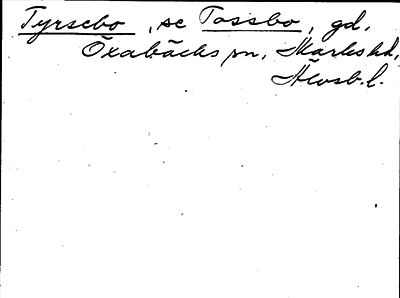 Tyrsebo, se Tossbo, gd,
Öxabäcks sn, Marks hd,
Älvsb.l.